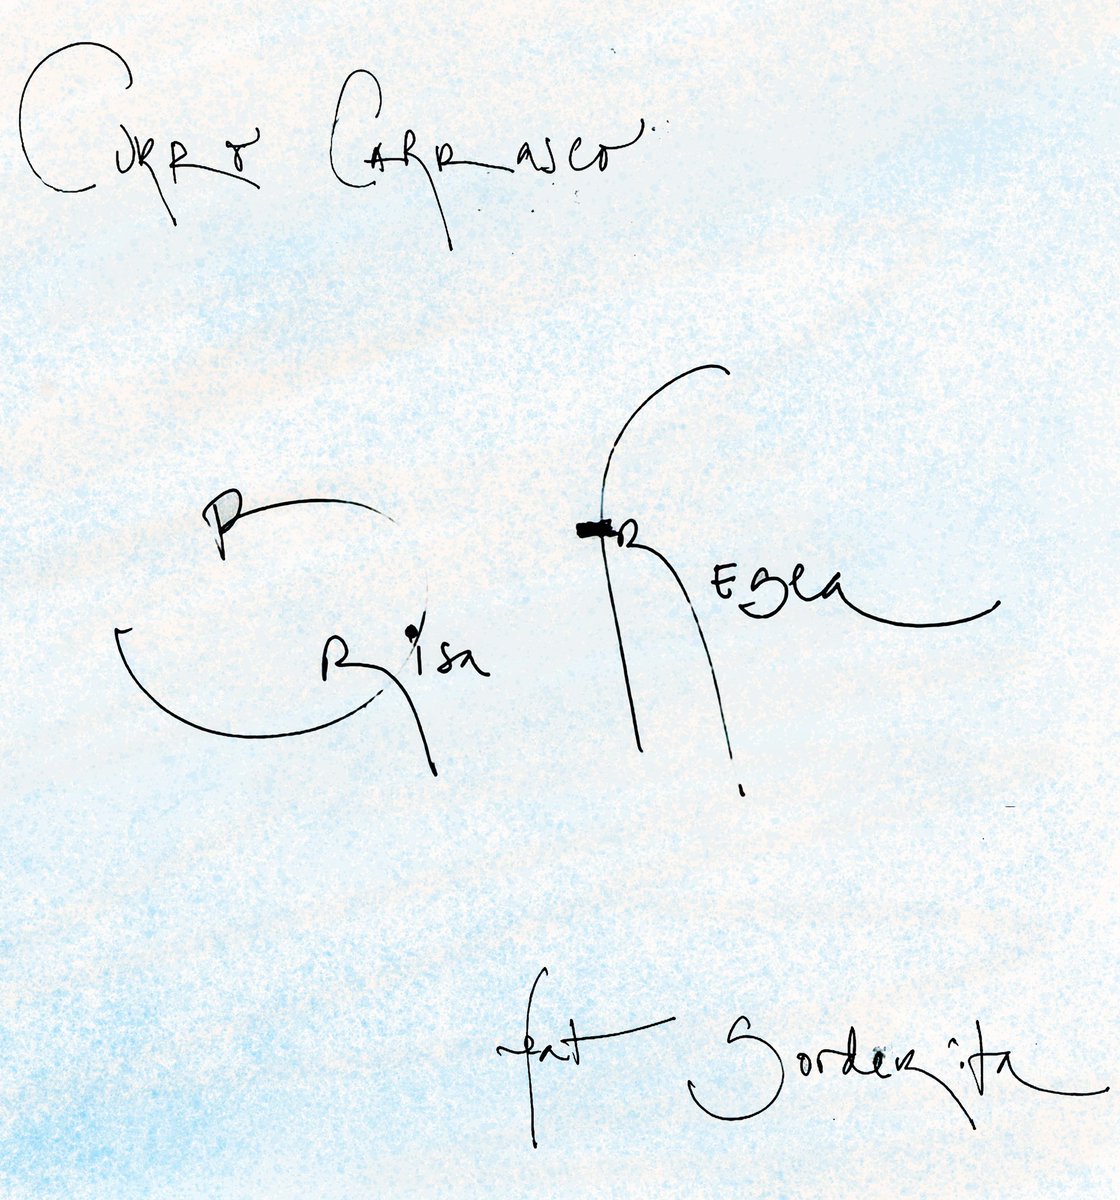 Curro Carrasco
Brisa FREsca
feat Sorderita